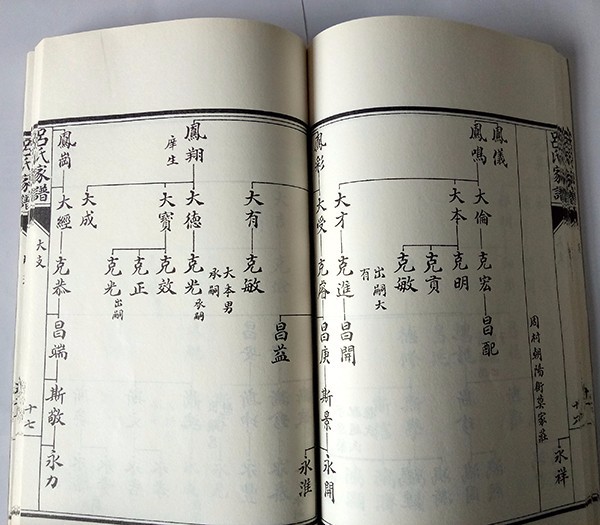 呂氏家譜
周村朝陽街欒家莊
鳳儀
鳳鳴
鳳彩
大倫
大本
大才
大受
克宏
克明
克貢
克敏
出嗣大
有
克進
昌配
昌開
昌庚
斯景
永祥
永開
永淮
鳳翔
庠生
鳳崗
大有
大德
大寶
大成
大經
克敏
大本男
承嗣
克光
承嗣
克效
克正
克光
出嗣
克恭
昌益
昌端
斯敬
永力
呂氏家譜
大支
十七